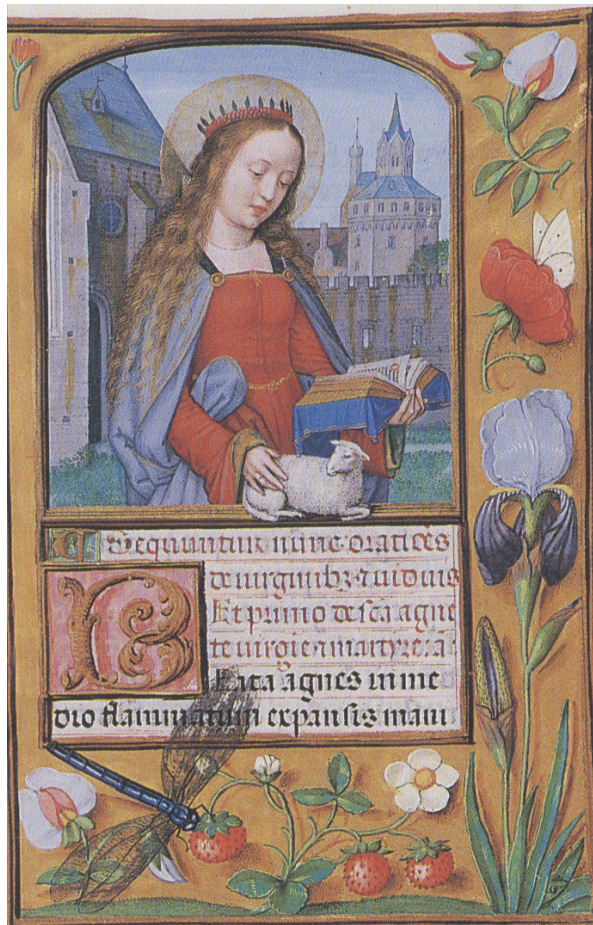 Sequuntur nunc oratiões
de uirginibz & uiduis
Et primo de scã agne
te uirgie & martyre. añ.
Beata agnes in me
dio flammarum expansis mani